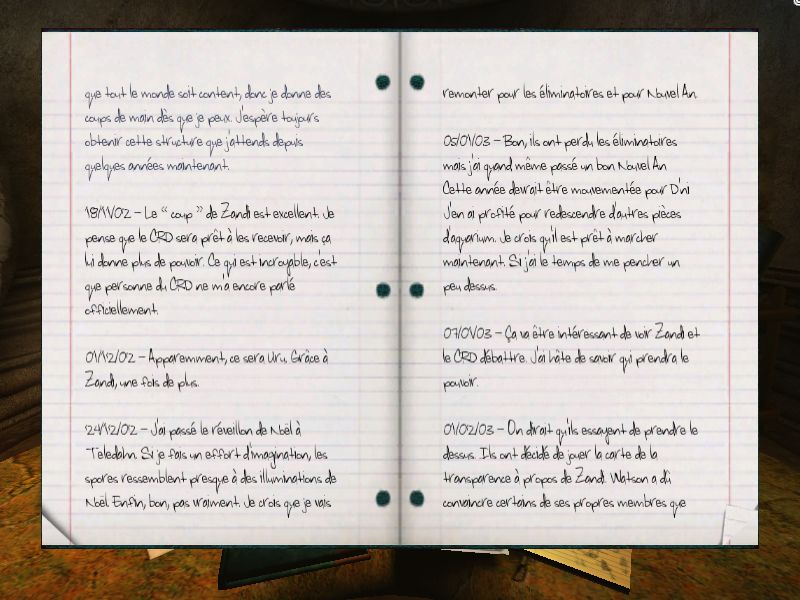 que tout le monde soit content, donc je donne des
coups de main dès que je peux. J'espère toujours
obtenir cette structure que j'attends depuis
quelques années maintenant.
18/11/02 – Le " coup " de Zandi est excellent. Je
pense que le CRD sera prêt à les recevoir, mais ça
lui donne plus de pouvoir. Ce qui est incroyable, c'est
que personne du CRD ne m'a encore parlé
officiellement.
01/12/02 – Apparemment, ce sera Uru. Grâce à
Zandi, une fois de plus.
24/12/02 – J'ai passé le réveillon de Noël à
Teledahn. Si je fais un effort d'imagination, les
spores ressemblent presque à des illuminations de
Noël Enfin, bon, pas vraiment. Je crois que je vais
remonter pour les éliminatoires et pour Nouvel An.
05/01/03 – Bon, ils ont perdu les éliminatoires
mais j'ai quand même passé un bon Nouvel An
Cette année devrait être mouvementée pour D'ni
J'en ai profité pour redescendre d'autres pièces
d'aquarium. Je crois qu'il est prêt à marcher
maintenant. Si j'ai le temps de me pencher un
peu dessus.
07/01/03 – Ça va être intéressant de voir Zandi et
le CRD débattre. J'ai hâte de savoir qui prendra le
pouvoir.
01/02/03 – On dirait qu'ils essayent de prendre le
dessus. Ils ont décidé de jouer la carte de la
transparence à propos de Zandi. Watson a dû
convaincre certains de ses propres membres que